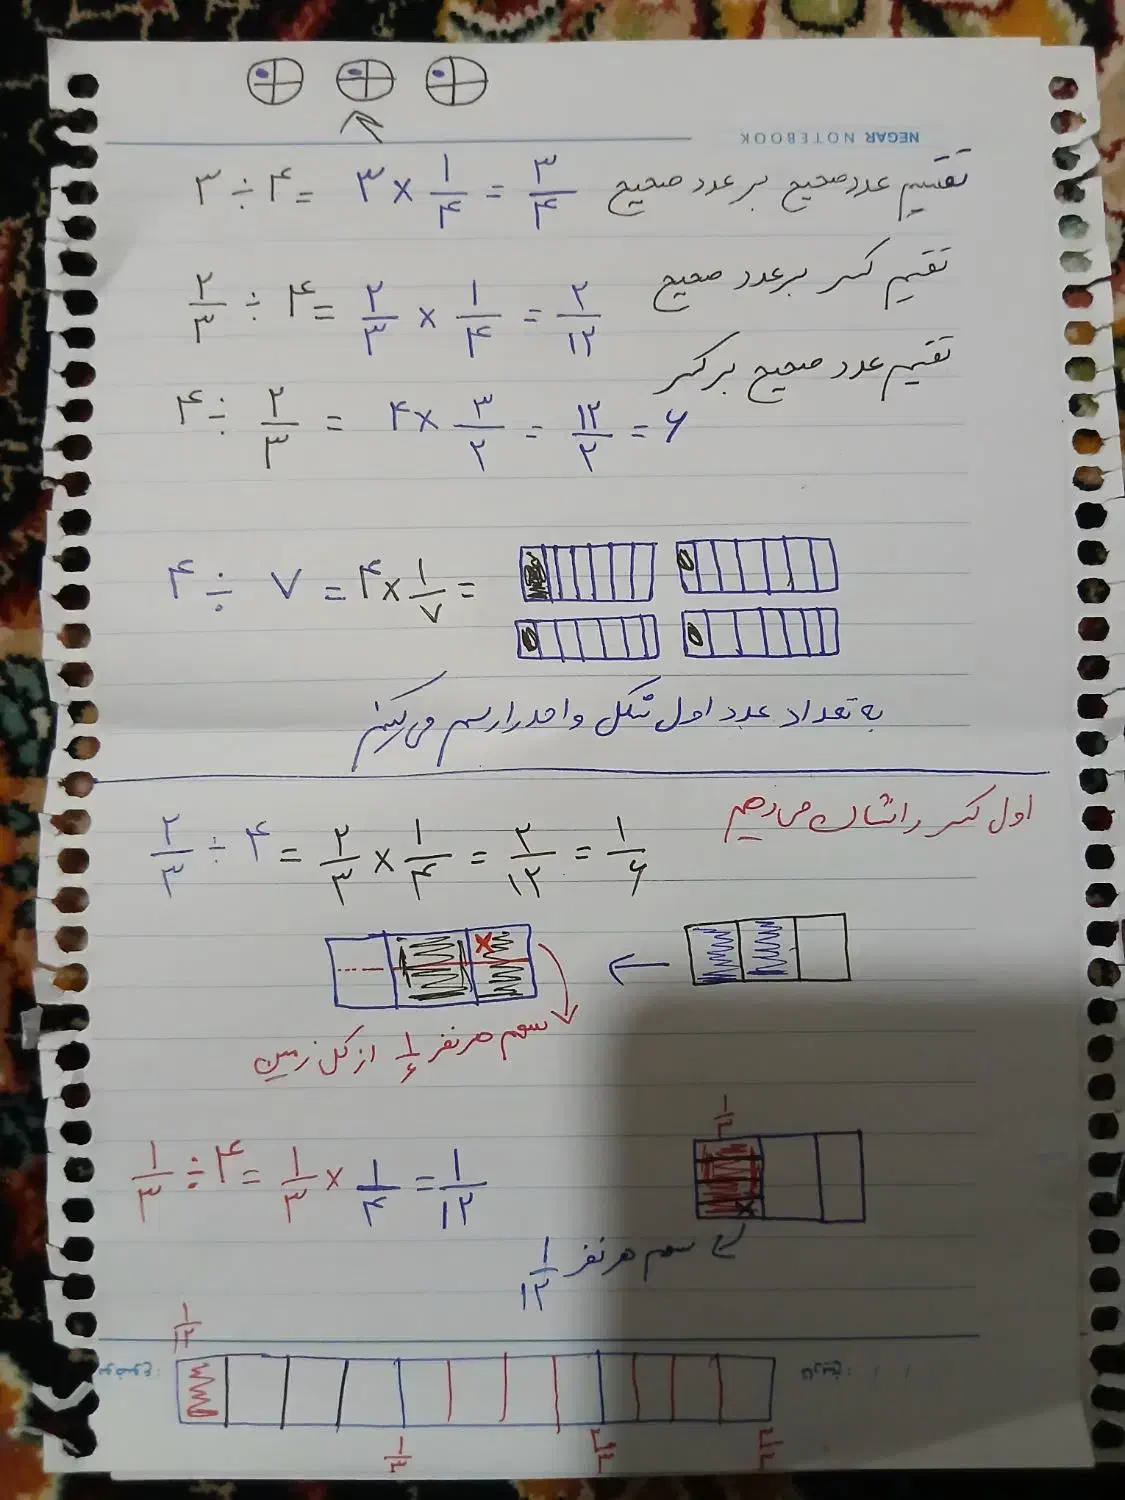 NEGAR NOTEBOOK
۳ ÷ ۴ = ۳ × ۱/۴ = ۳/۴ تقسیم عدد صحیح بر عدد صحیح
۲/۳ ÷ ۴ = ۲/۳ × ۱/۴ = ۲/۱۲ تقسیم کسر بر عدد صحیح
تقسیم عدد صحیح بر کسر
۴ ÷ ۲/۳ = ۴ × ۳/۲ = ۱۲/۲ = ۶
۴ ÷ ۷ = ۴ × ۱/۷ =
به تعداد عدد اول شکل واحد را رسم می‌کنیم
اول کسر را نشان می‌دهیم
۲/۳ ÷ ۴ = ۲/۳ × ۱/۴ = ۲/۱۲ = ۱/۶
سهم هر نفر ۱/۶ از کل زمین
۱/۳
۱/۳ ÷ ۴ = ۱/۳ × ۱/۴ = ۱/۱۲
سهم هر نفر ۱/۱۲
۱/۱۲
۱/۳ ۲/۳ ۳/۳